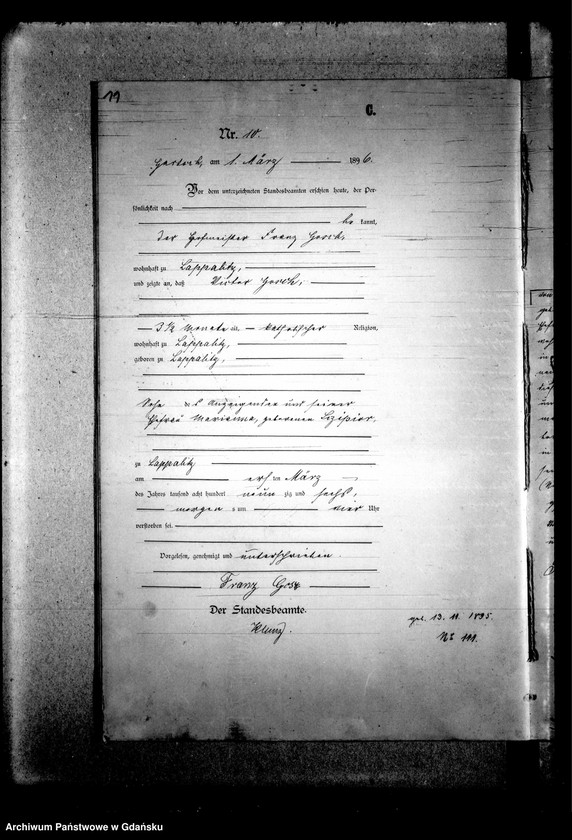 11
C.
Nr. 10.
am 1. März 1896.
Vor dem unterzeichneten Standesbeamten erschien heute, der Per-
sönlichkeit nach
be kannt,
der Hofmeister Franz Grosch,
wohnhaft zu Lappalitz,
und zeigte an, daß Victor Grosch,
3 1/2 Monate alt, katholischer Religion,
wohnhaft zu Lappalitz,
geboren zu Lappalitz,
Sohn des Anzeigenden und seiner
Ehefrau Marianna, geborenen
zu Lappalitz
am ersten März
des Jahres tausend acht hundert neun zig und sechs,
morgens um vier Uhr
verstorben sei.
Vorgelesen, genehmigt und unterschrieben
Franz
Der Standesbeamte.
geb. 13. 11. 1895.
No 111.
Archiwum Państwowe w Gdańsku